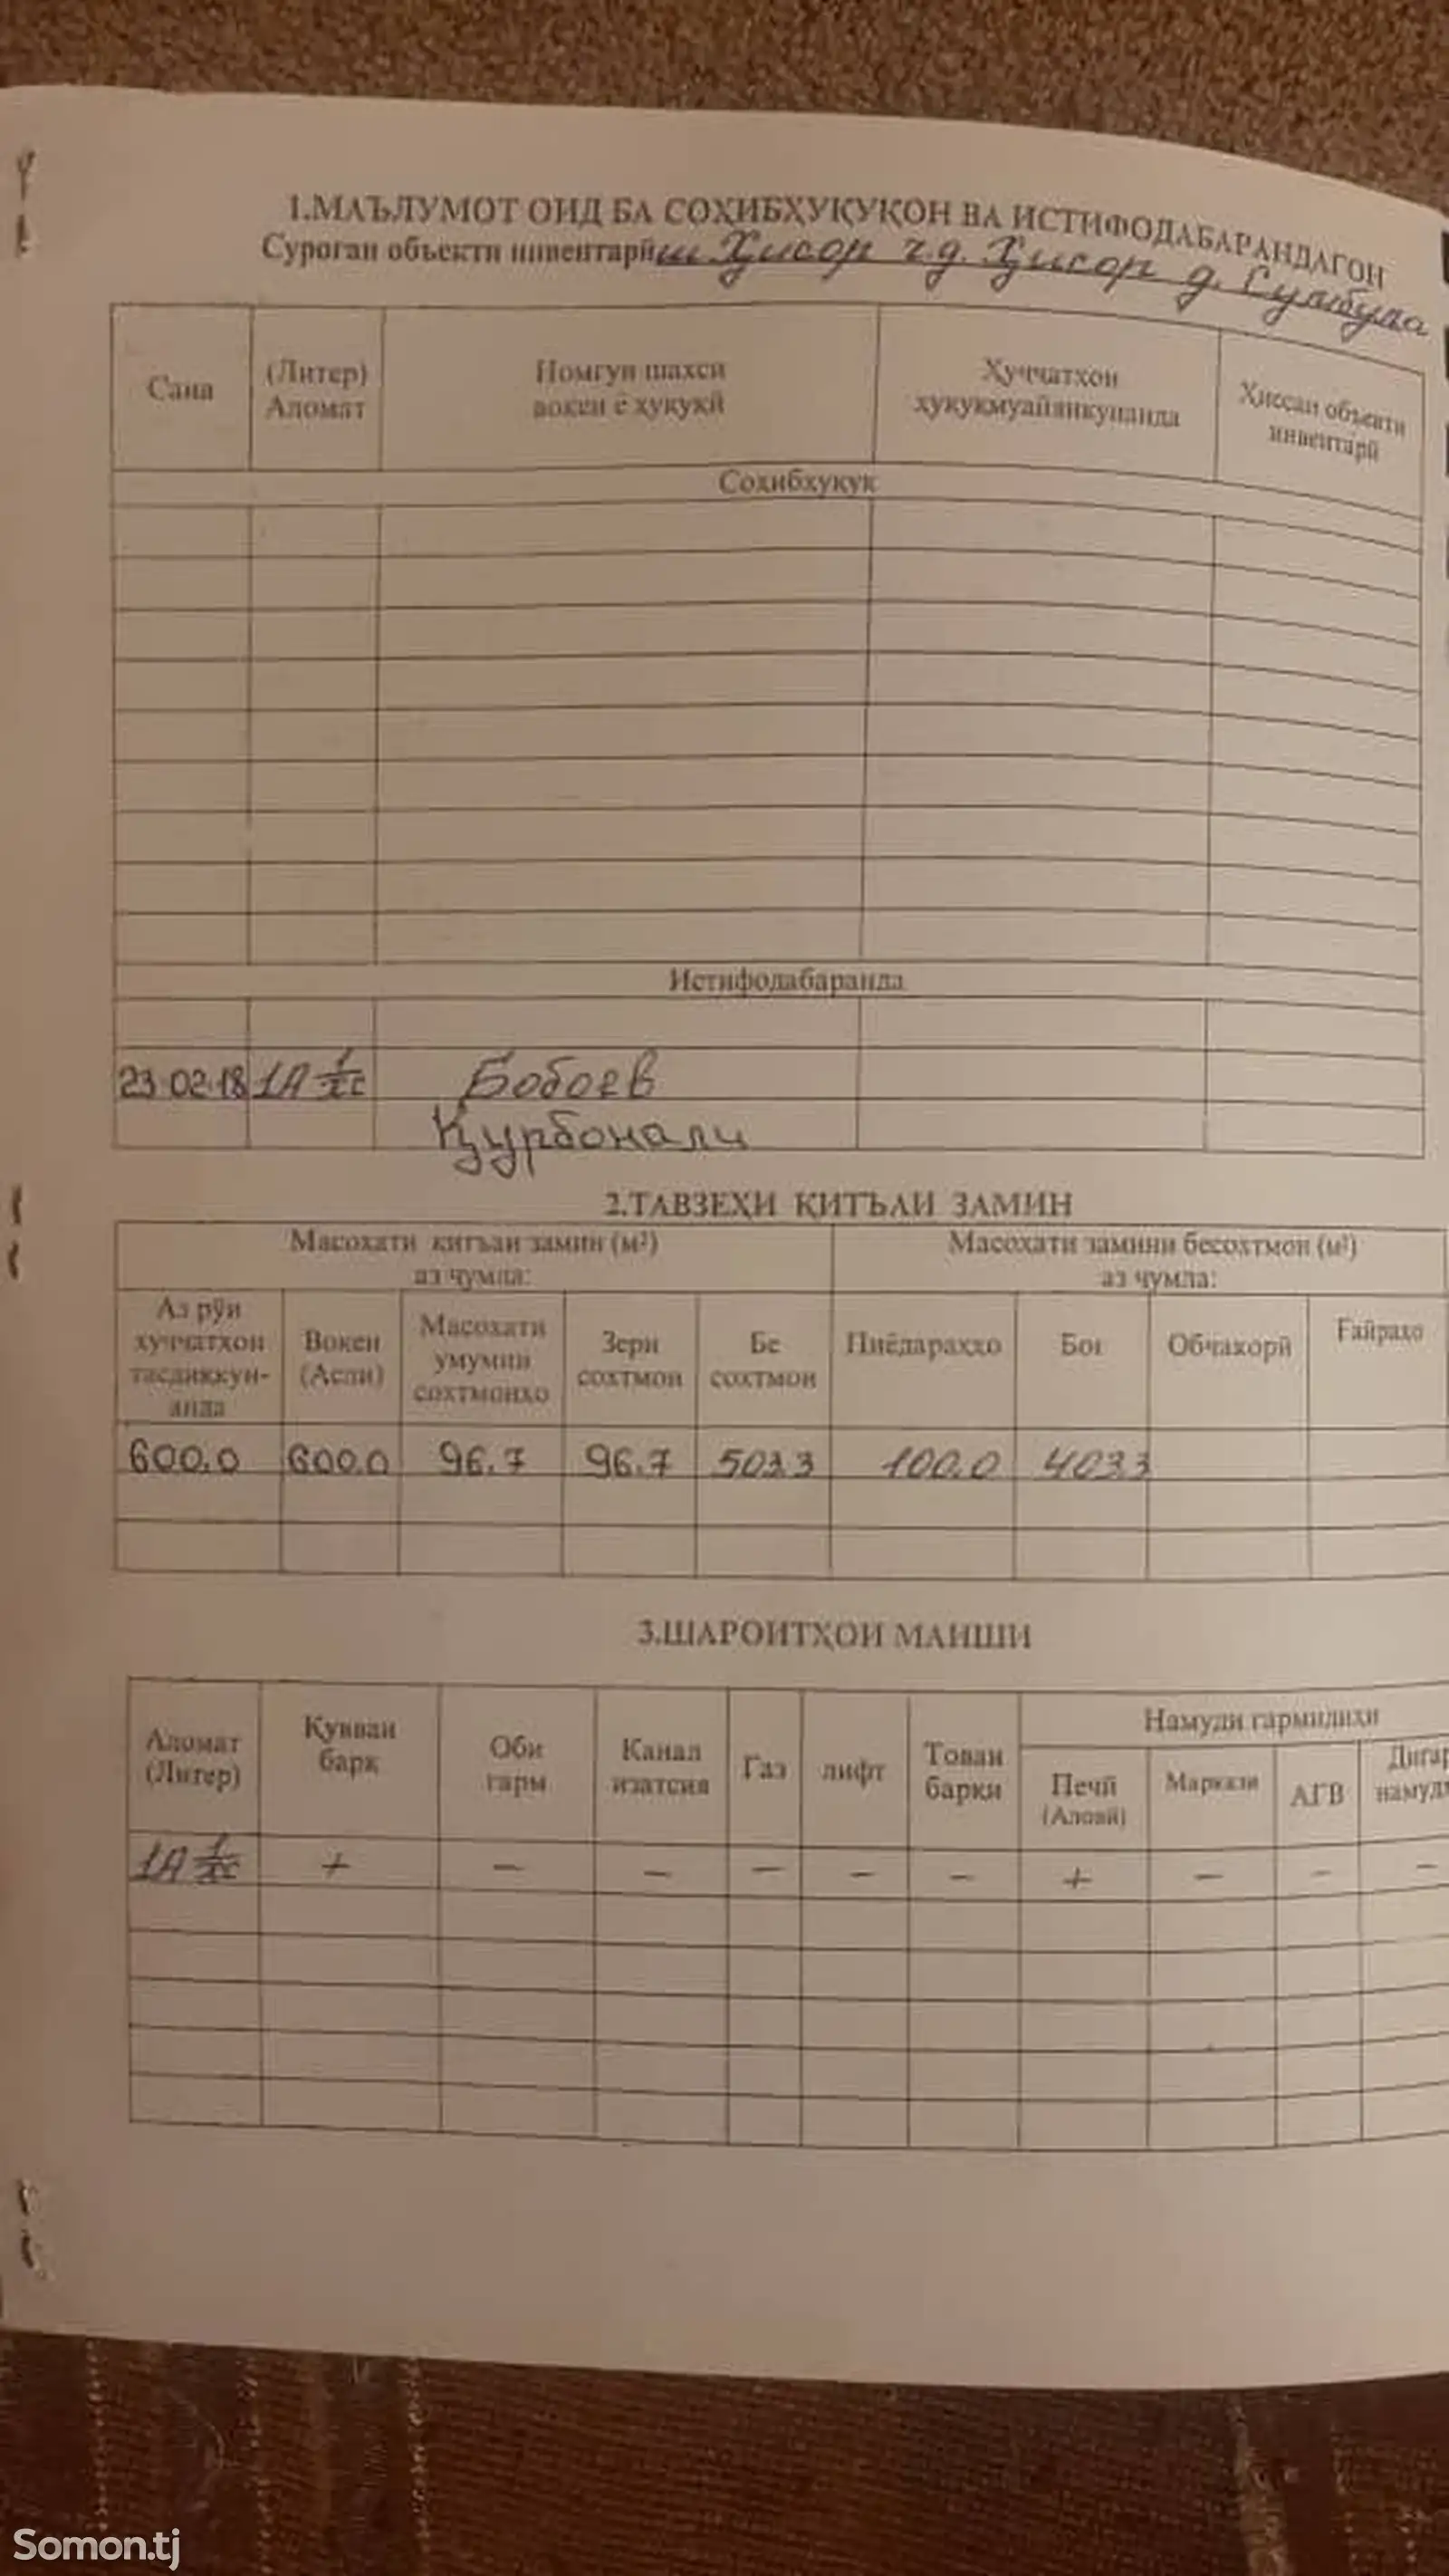 1.МАЪЛУМОТ ОИД БА СОҲИБҲУҚУҚОН ВА ИСТИФОДАБАРАНДАГОН
Суроғаи объекти инвентарӣ ш. Ҳисор ҷ.д. Ҳисор д. Сумбула
Сана
(Литер)
Аломат
Номгуи шахси
вокеи ё ҳуқуқӣ
Ҳуҷҷатҳои
ҳуқуқмуайянкунанда
Ҳиссаи объекти
инвентарӣ
Соҳибҳуқуқ
Истифодабаранда
23.02.18
1А
Бобоев
Қурбонали
2.ТАВЗЕҲИ ҚИТЪАИ ЗАМИН
Масоҳати китъаи замин (м²)
аз ҷумла:
Масоҳати замини бесохтмон (м²)
аз ҷумла:
Аз рӯи
ҳуҷҷатҳои
тасдиққун-
анда
Вокеи
(Асли)
Масоҳати
умумии
сохтмонҳо
Зери
сохтмон
Бе
сохтмон
Пиёдараҳҳо
Боғ
Обчакорӣ
Ғайраҳо
600.0 600.0 96.7 96.7 503.3 100.0 403.3
3.ШАРОИТҲОИ МАИШИ
Аломат
(Литер)
Қувваи
барқ
Оби
гарм
Канал
изатсия
Газ
лифт
Тован
барки
Намуди гармидиҳи
Печӣ
(Аловӣ)
Маркази
АГВ
1А + – – – – – + – – –
Somon.tj